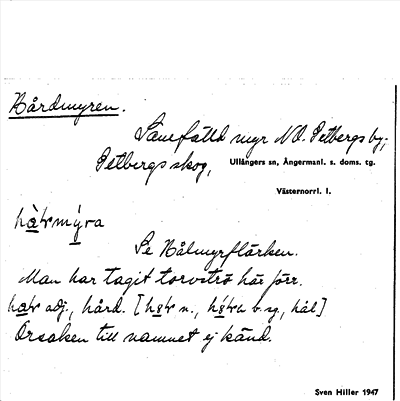 Hårdmyren.
Sänefälld myr NO. Petbergs by;
Petbergs skog,
Ullångers sn, Ångermanl. s. doms. tg.
Västernorrl. l.
Se Hålmyrflärken.
Man har tagit torvströ här förr.
adj., hård. [ n., b. sg., hål]
Orsaken till namnet ej känd.
Sven Hiller 1947